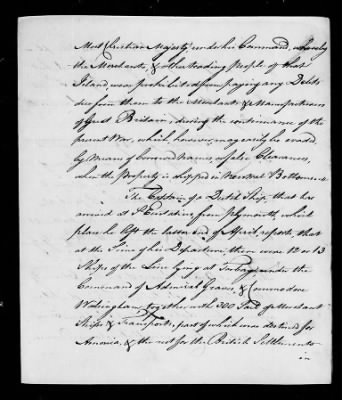 Most Christian Majesty under his Command, whereby
the Merchants, & other trading people of that
Island, were prohibited from paying any Debts
due from them to the Merchants & Manufacturers
of Great Britain, during the continuance of the
present War, which, however, may easily be evaded,
by Means of borrowed Names, or false Clearances,
when the Property is shipped in Neutral Bottoms.
The Captain of a Dutch Ship, that has
arrived at St Eustatius from plymouth, which
place he left the latter end of April, reports, that
at the time of his Departure, there were 12 or 13
Ships of the Line lying at Torbay, under the
Command of Admiral Graves, & Commodore
Walsingham, together with 300 Sail of Merchant
Ships & Transports, part of which was destined for
America, & the rest for the British Settlements
in